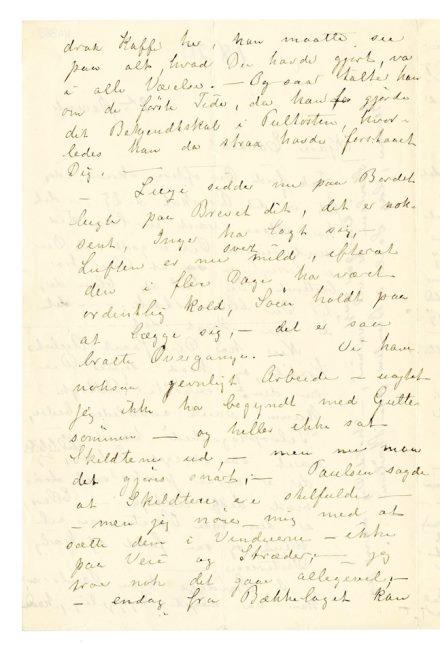 drak Kaffe her, han maatte see
paa alt, hvad Du havde gjort, va
i alle Værelser. — Og saa talte han
om de første Tider, da han gjorde
dit Bekjendtskab i Pultosten, hvor-
ledes han da straa havde forstaaet
Dig. —
— Luge sidder nu paa Bordet
lugte paa Brevet dit, det er nok-
sent, Inge har lagt sig, —
Luften er nu svert mild, efterat
den i fler Dage ha været
ordentlig kold, Isen holdt paa
at lægge sig, — det er saa
bratte Overgange. — Vi have
noksaa jevnligt Arbeide — uagtet
jeg ikke ha begyndt med Gutte
sømmen — og heller ikke sat
Skildterne ud, — men nu maa
det gjøres snart; — Paulsen sagde
at Skildterne ere skilfulde —
— men jeg nøier mig med at
sætte dem i Vinduerne — ikke
paa Veie og Stræder, — jeg
tror nok det gaar allegevel, —
— endog fra Bækkelaget kan